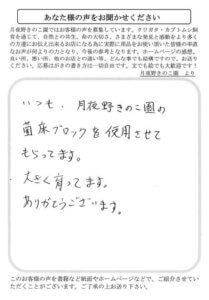 あなた様の声をお聞かせください
月夜野きのこ園ではお客様の声を募集しています。クワガタ・カブトムシ飼
育を通じて、自然との共生、命の大切さ、さまざまな発見と感動をより多く
の方達にお伝え出来るお店になる為に実際に用品をお使い頂いた皆様の率直
なお声が何よりの力となり、今後の参考となります。ホームページの感想、
良い所、悪い所、他のお店との違い等、どんな事でも結構ですので、お送り
ください。応募はがきの書き方は一切自由です。文でも絵でも大歓迎です!
月夜野きのこ園 より
いつも、月夜野きのこ園の
菌床ブロックを使用させて
もらってます。
大きく育ってます。
ありがとうございます。
このお客様の声を書籍など紙面やホームページなどで、ご紹介させてい
ただくことがございます。ご了承の上お送り下さい。